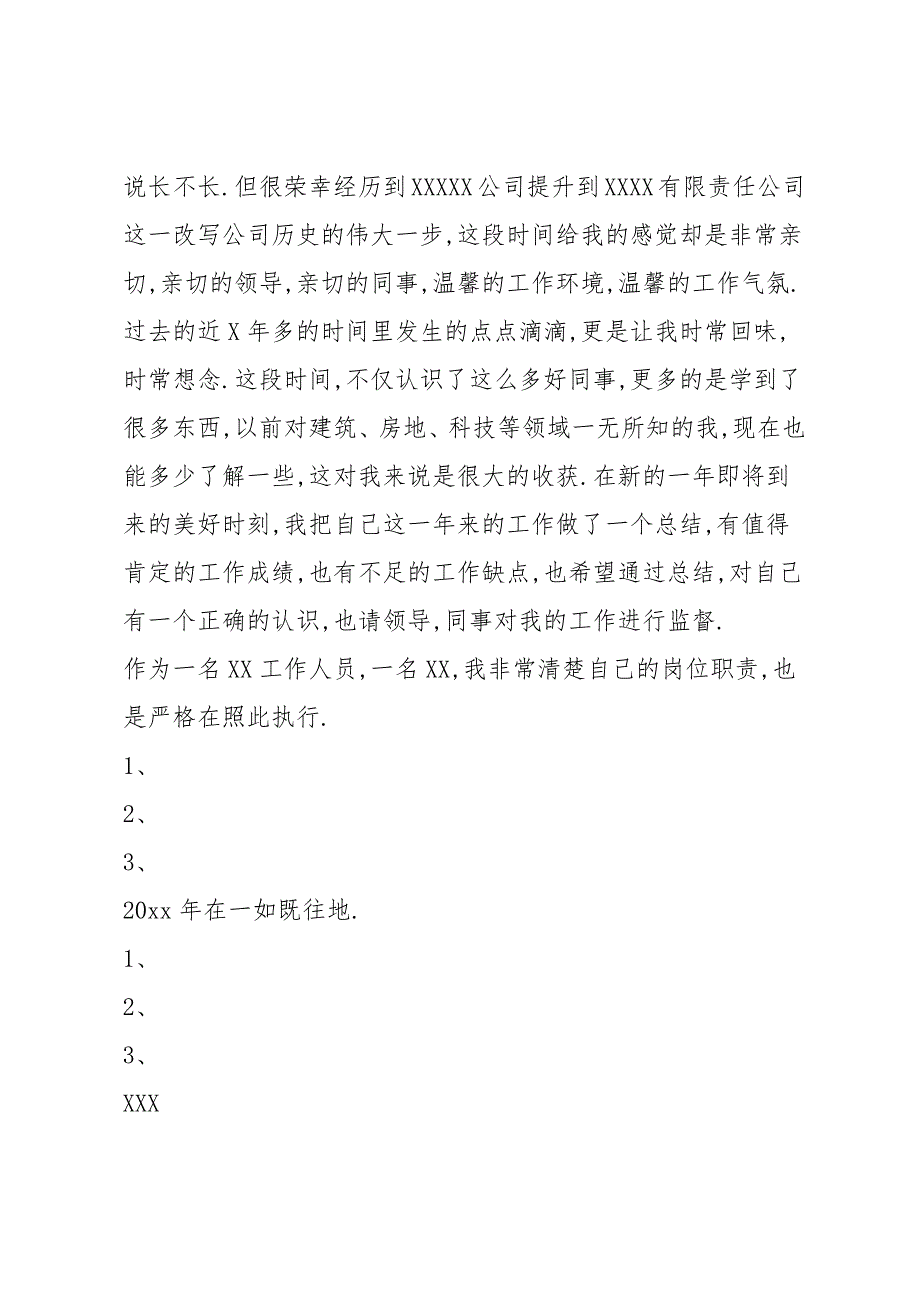 说长不长.但很荣幸经历到XXXXX公司提升到XXXX有限责任公司
这一改写公司历史的伟大一步,这段时间给我的感觉却是非常亲
切,亲切的领导,亲切的同事,温馨的工作环境,温馨的工作气氛.
过去的近X年多的时间里发生的点点滴滴,更是让我时常回味,
时常想念.这段时间,不仅认识了这么多好同事,更多的是学到了
很多东西,以前对建筑、房地、科技等领域一无所知的我,现在也
能多少了解一些,这对我来说是很大的收获.在新的一年即将到
来的美好时刻,我把自己这一年来的工作做了一个总结,有值得
肯定的工作成绩,也有不足的工作缺点,也希望通过总结,对自己
有一个正确的认识,也请领导,同事对我的工作进行监督.
作为一名XX工作人员,一名XX,我非常清楚自己的岗位职责,也
是严格在照此执行.
1、
2、
3、
20xx年在一如既往地.
1、
2、
3、
XXX